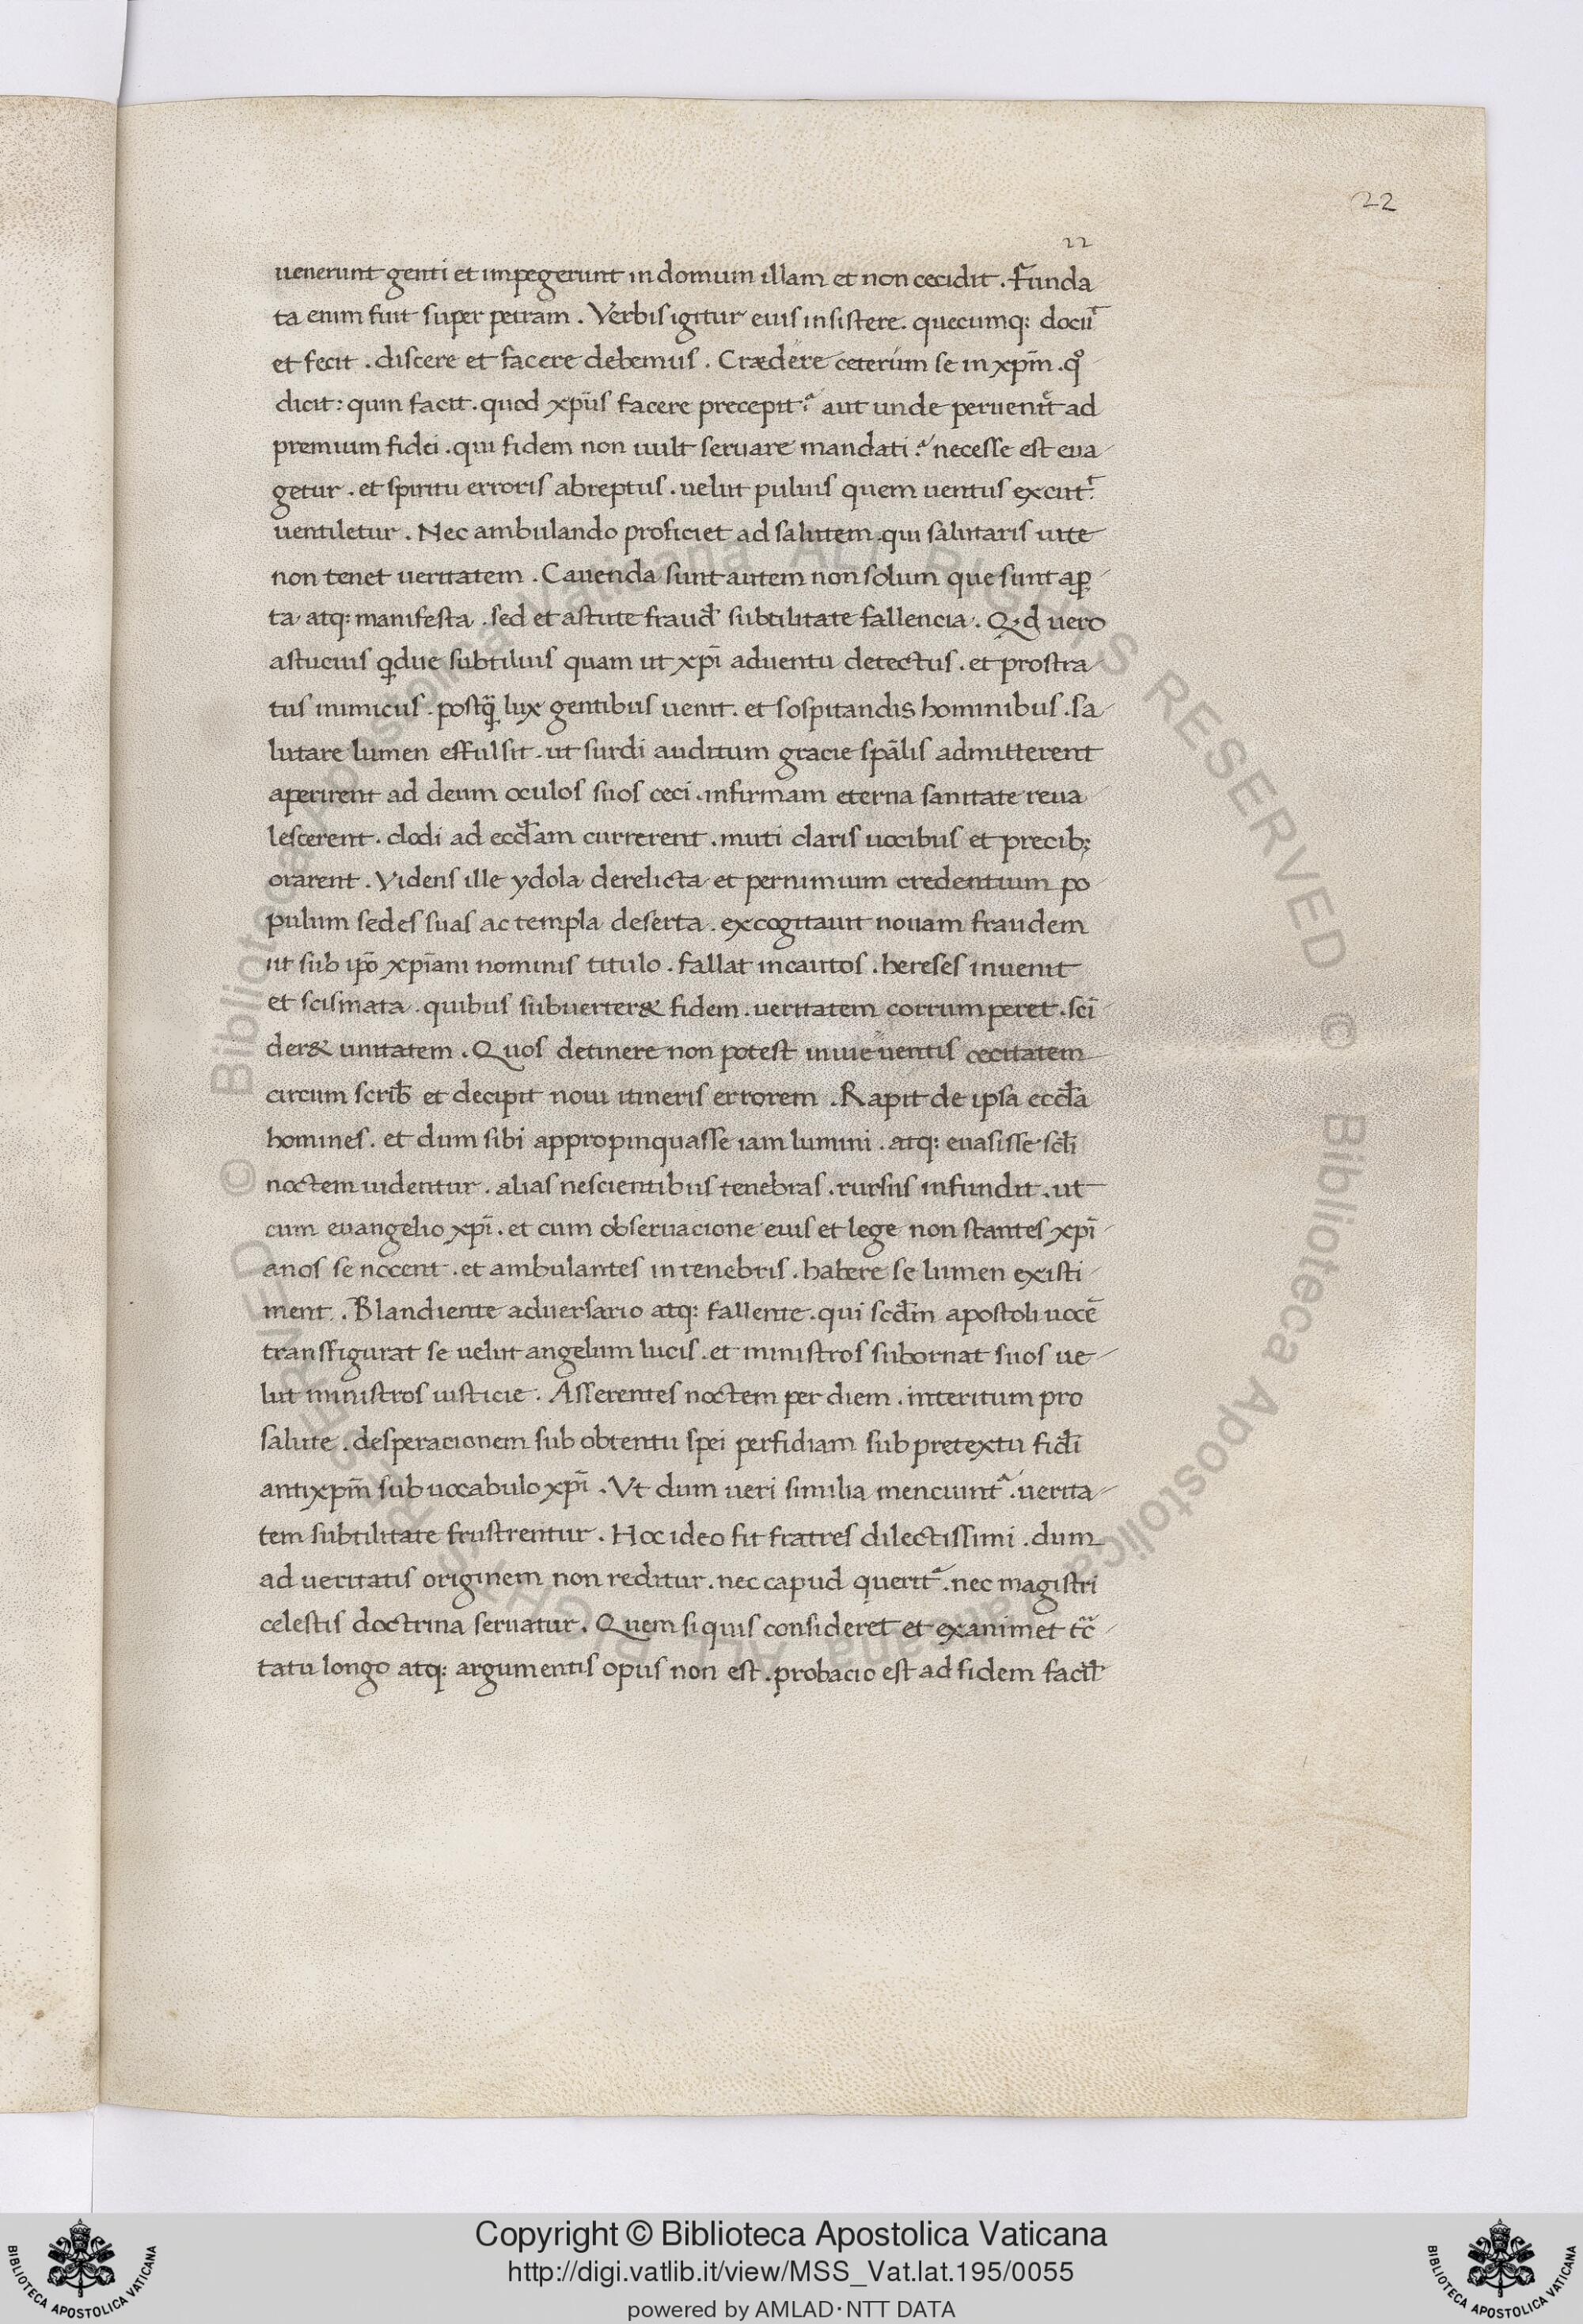 22
22
uenerunt genti et impegerunt in domum illam et non cecidit . Funda
ta enim fuit super petram . Verbis igitur euis insistere . quecumq: docuͭ
et fecit . discere et facere debemus . Crædere ceterum se in xp̄m . qͦ
dicit : quin facit . quod xp̄us facere precepit ? aut unde perueniͭ ad
premium fidei . qui fidem non uult seruare mandati ? necesse est eua
getur . et spiritu erroris abreptus . uelut puluis quem uentus excut
uentiletur . Nec ambulando proficiet ad salutem . qui salutaris uite
non tenet ueritatem . Cauenda sunt autem non solum que sunt aꝑ
ta atq: manifesta . sed et astute fraud̄ subtilitate fallencia . Q·d uero
astucius q̨due subtilius quam ut xp̄i aduentu detectus . et prostra
tus inimicus . postq̨̄ lux gentibus uenit . et sospitandis hominibus . sa
lutare lumen effulsit . ut surdi auditum gracie sp̄alis admitterent
aperirent ad deum oculos suos ceci . infirmam eterna sanitate reua
lescerent . clodi ad eccl̄am currerent . muti claris uocibus et precib;
orarent . Videns ille ydola derelicta et pernimium credentium po
pulum sedes suas ac templa deserta . excogitauit nouam fraudem
ut sub ip̄o xp̄iani nominis titulo . fallat incautos . hereses inuenit
et scismata . quibus subuerter& fidem . ueritatem corrumperet . sci
der& unitatem . Quos detinere non potest in uie uentis cecitatem
circum scrib̄ et decipit noui itineris errorem . Rapit de ipsa eccl̄a
homines . et dum sibi appropinquasse iam lumini . atq: euasisse scl̄i
noctem uidentur . alias nescientibus tenebras . rursus infundit . ut
cum euangelio xp̄i . et cum obseruacione euis et lege non stantes xp̄i
anos se nocent . et ambulantes in tenebris . habere se lumen existi
ment . Blandiente aduersario atq: fallente . qui scd̄m apostoli uocē
transfigurat se uelut angelum lucis . et ministros subornat suos ue
lut ministros iusticie . Asserentes noctem per diem . interitum pro
salute . desperacionem sub obtentu spei perfidiam sub pretextu fid̄i
antixp̄m sub uocabulo xp̄i . Vt dum ueri similia menciunt᷑ . uerita
tem subtilitate frustrentur . Hoc ideo fit fratres dilectissimi . dum
ad ueritatis originem non reditur . nec capud querit᷑ . nec magistri
celestis doctrina seruatur . Quem si quis consideret et exanimet tᷓc
tatu longo atq: argumentis opus non est . probacio est ad fidem facil̄
Copyright © Biblioteca Apostolica Vaticana
http://digi.vatlib.it/view/MSS_Vat.lat.195/0055
powered by AMLAD·NTT DATA
BIBLIOTECA APOSTOLICA VATICANA
BIBLIOTECA APOSTOLICA VATICANA